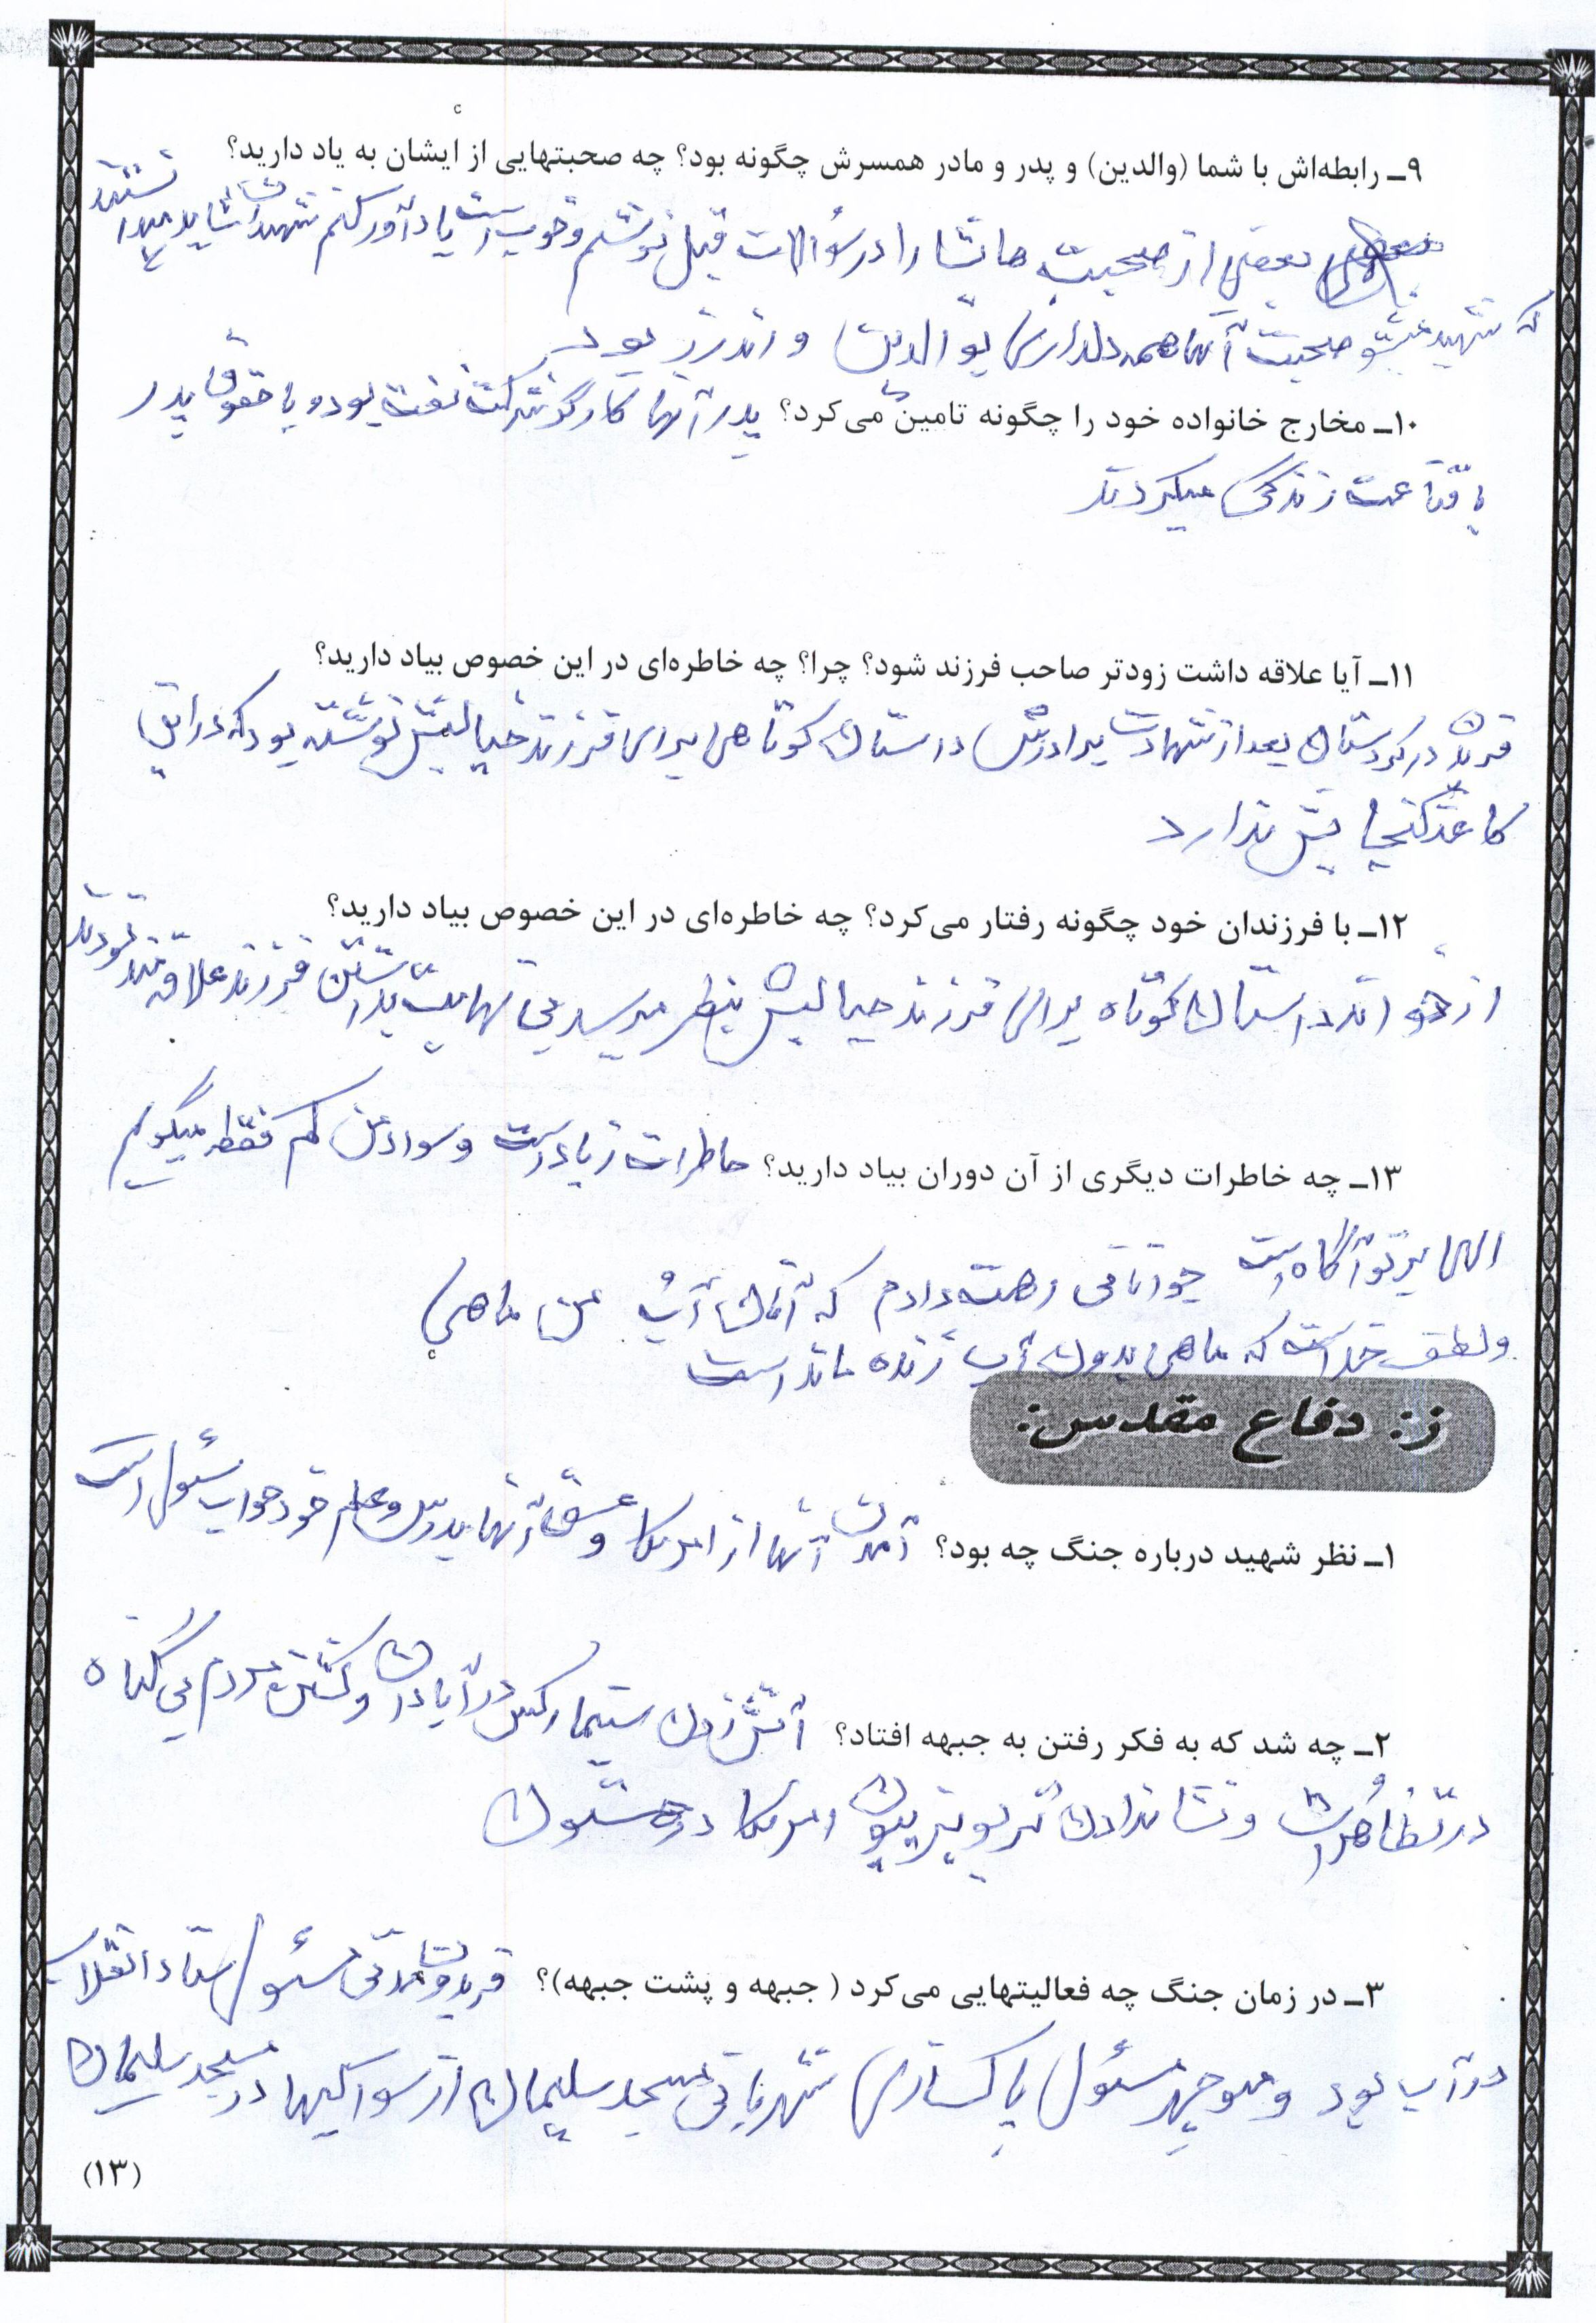 ۹ـ رابطه‌اش با شما (والدین) و پدر و مادر همسرش چگونه بود؟ چه صحبتهایی از ایشان به یاد دارید؟
بعضی از صحبت هاشا را در سؤالات قبل نوشتم و خوب است یادآور کنم شهیدان شاید میدانستند
که شهید میشو صحبت آنها همه دلداری بوالدین و اندرز بود
۱۰ـ مخارج خانواده خود را چگونه تامین می‌کرد؟ پدر آنها کارگر شرکت نفت بود و با حقوق پدر
با قناعت زندگی میکردند
۱۱ـ آیا علاقه داشت زودتر صاحب فرزند شود؟ چرا؟ چه خاطره‌ای در این خصوص بیاد دارید؟
در کردستان بعد از شهادت برادرش داستان کوتاهی برای فرزند خیالیش نوشته بود که در این
کاغذ گنجایش ندارد
۱۲ـ با فرزندان خود چگونه رفتار می‌کرد؟ چه خاطره‌ای در این خصوص بیاد دارید؟
از خواند داستان کوتاه برای فرزند خیالیش بنظر میرسد بی نهایت بداشتن فرزند علاقه‌مند بودند
۱۳ـ چه خاطرات دیگری از آن دوران بیاد دارید؟ خاطرات زیاد است و سواد من کم فقط میگویم
الهی بر تو آگاه است جوانانی رهت دادم که آنان آب من ماهی
و لطف خداست که ماهی بدون آب زنده مانداست
ز: دفاع مقدس:
۱ـ نظر شهید درباره جنگ چه بود؟ آمدن آنها از امریکا و عشق آنها بدرس و علم خود جواب سئول است
۲ـ چه شد که به فکر رفتن به جبهه افتاد؟ آتش زدن سینما رکس در آبادان و کشتن مردم بی گناه
در تظاهرات و نشاندادن تلویزیون امریکا
۳ـ در زمان جنگ چه فعالیتهایی می‌کرد ( جبهه و پشت جبهه)؟ مدتی مسئول ستاد انقلاب
در آب بود و منوچهر مسئول پاکسازی شهربانی مسجد سلیمان از سواکیها در مسجد سلیمان
(۱۳)